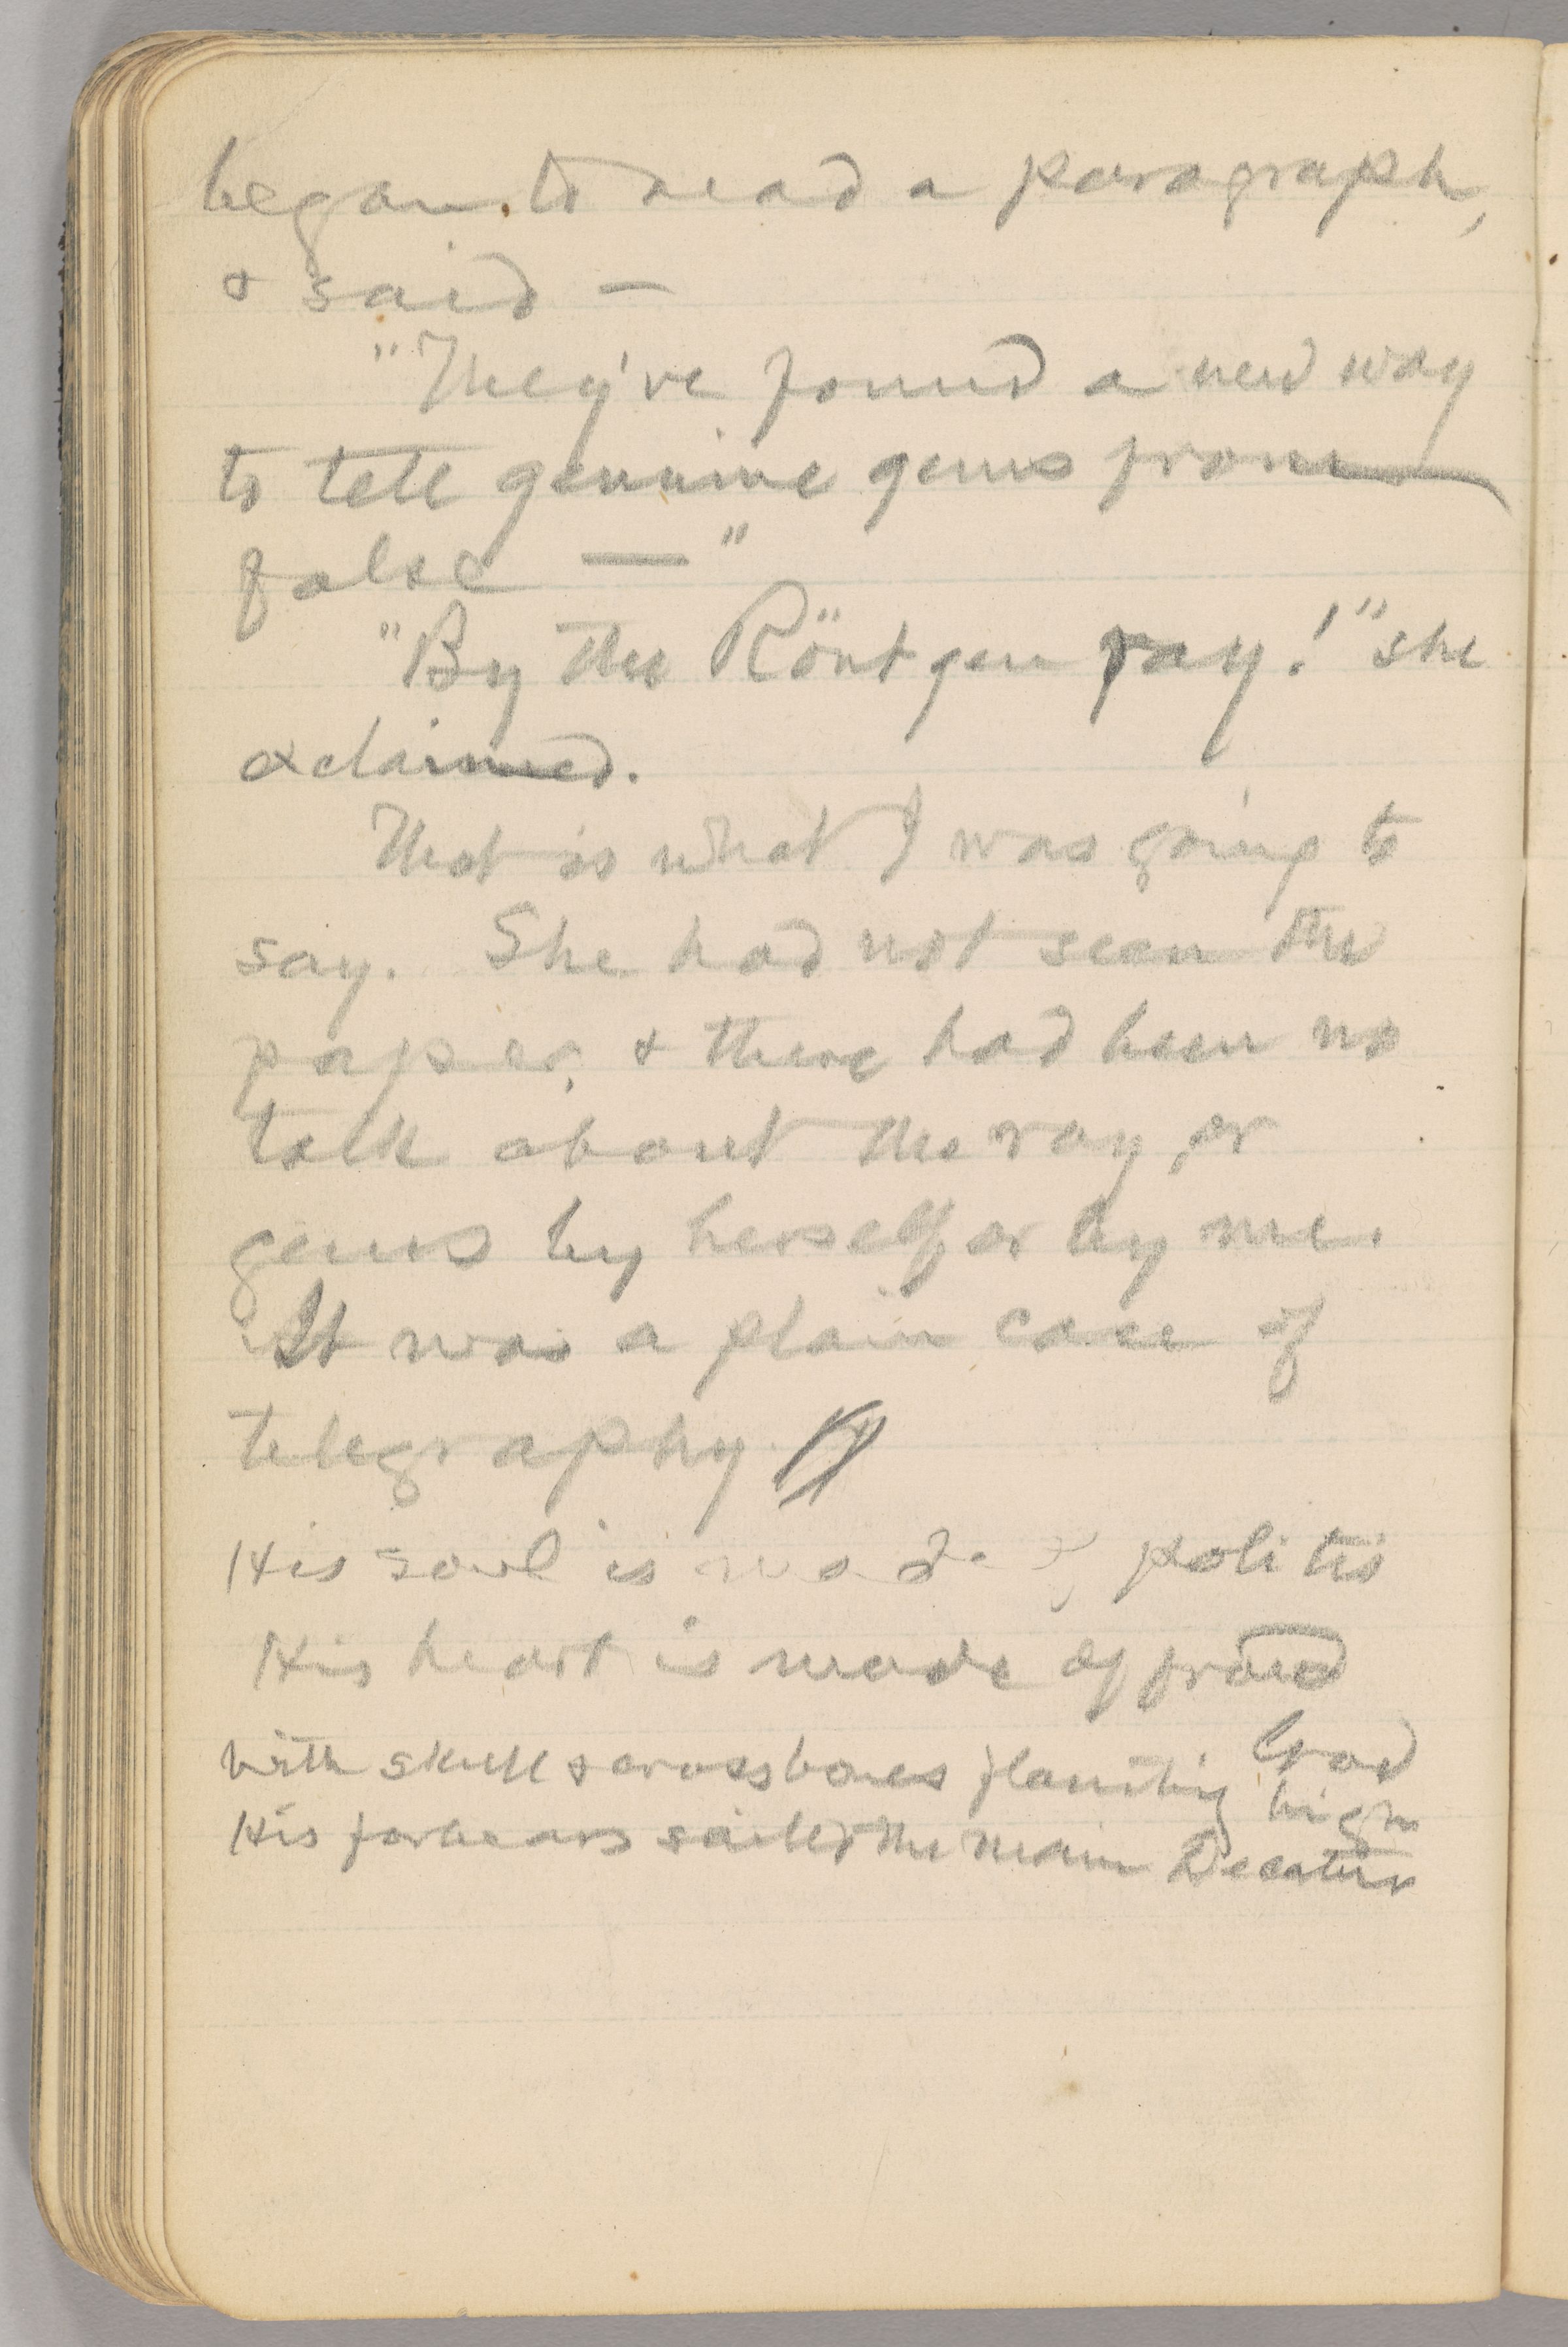 began to read a paragraph,
& said —
"They've found a new way
to tell genuine gems from
false — "
"By the Röntgen ray!" she
exclaimed.
That is what I was going to
say. She had not seen the
paper, & there had been no
talk about the ray, or
gems by herself or by me.
It was a plain case of
telegraphy.
His soul is made of politis
His heart is made of
with skull & crossbones flaunting
high
His forbears sailed the main